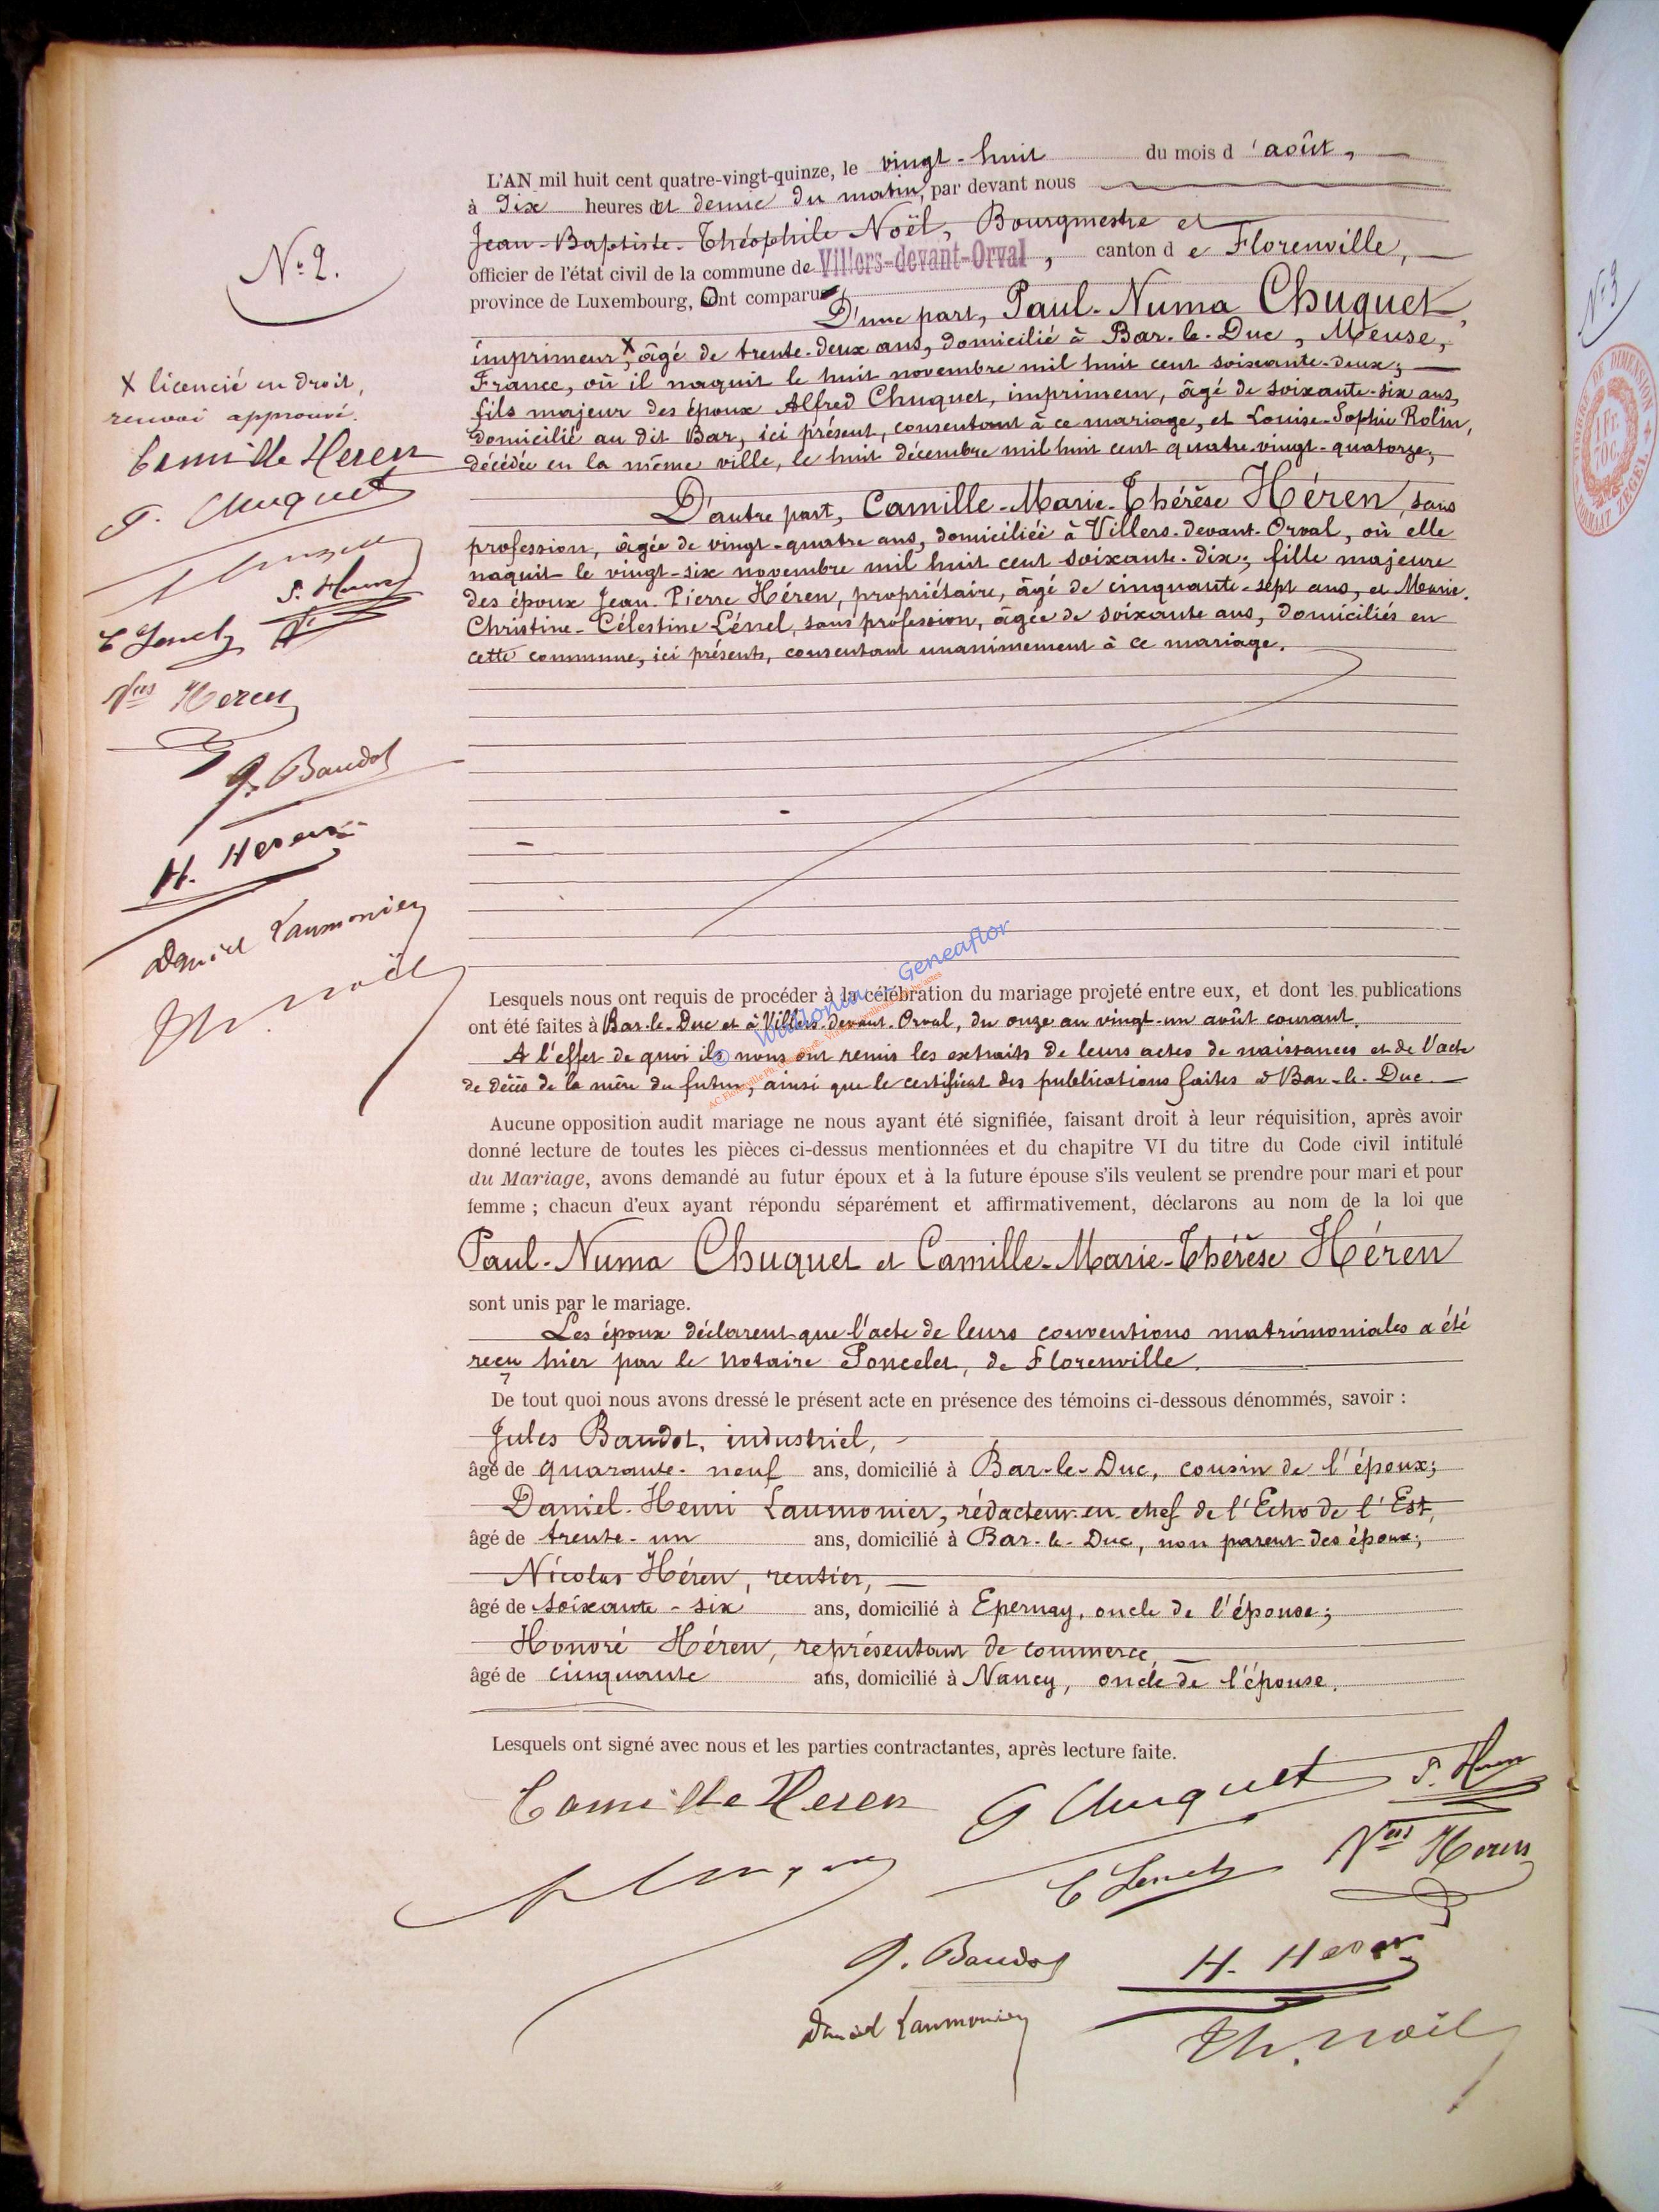 L'AN mil huit cent quatre-vingt-quinze, le vingt-huit du mois d'août,
à dix heures et demie du matin, par devant nous
Jean-Baptiste-Théophile Noël, Bourgmestre et
officier de l'état civil de la commune de Villers-devant-Orval, canton de Florenville,
province de Luxembourg, Ont comparu
D'une part, Paul-Numa Chuquet,
imprimeur X, âgé de trente-deux ans, domicilié à Bar-le-Duc, Meuse,
France, où il naquit le huit novembre mil huit cent soixante-deux;
fils majeur des époux Alfred Chuquet, imprimeur, âgé de soixante-six ans,
domicilié au dit Bar, ici présent, consentant à ce mariage, et Louise-Sophie Rolin,
décédée en la même ville, le huit décembre mil huit cent quatre-vingt-quatorze,
D'autre part, Camille-Marie-Thérèse Héren, sans
profession, âgée de vingt-quatre ans, domiciliée à Villers-devant-Orval, où elle
naquit le vingt-six novembre mil huit cent soixante-dix; fille majeure
des époux Jean-Pierre Héren, propriétaire, âgé de cinquante-sept ans, et Marie-
Christine-Célestine Lénel, sans profession, âgée de soixante ans, domiciliés en
cette commune, ici présents, consentant unanimement à ce mariage.
Lesquels nous ont requis de procéder à la célébration du mariage projeté entre eux, et dont les publications
ont été faites à Bar-le-Duc et à Villers-devant-Orval, du onze au vingt-un août courant.
A l'effet de quoi ils nous ont remis les extraits de leurs actes de naissances et de l'acte
de décès de la mère du futur, ainsi que le certificat des publications faites à Bar-le-Duc.
Aucune opposition audit mariage ne nous ayant été signifiée, faisant droit à leur réquisition, après avoir
donné lecture de toutes les pièces ci-dessus mentionnées et du chapitre VI du titre du Code civil intitulé
du Mariage, avons demandé au futur époux et à la future épouse s'ils veulent se prendre pour mari et pour
femme ; chacun d'eux ayant répondu séparément et affirmativement, déclarons au nom de la loi que
Paul-Numa Chuquet et Camille-Marie-Thérèse Héren
sont unis par le mariage.
Les époux déclarent que l'acte de leurs conventions matrimoniales a été
reçu hier par le notaire Poncelet, de Florenville.
De tout quoi nous avons dressé le présent acte en présence des témoins ci-dessous dénommés, savoir :
Jules Baudot, industriel,
âgé de quarante-neuf ans, domicilié à Bar-le-Duc, cousin de l'époux;
Daniel-Henri Laumonier, rédacteur-en-chef de l'Echo de l'Est,
âgé de trente-un ans, domicilié à Bar-le-Duc, non parent des époux;
Nicolas Héren, rentier,
âgé de soixante-six ans, domicilié à Epernay, oncle de l'épouse;
Honoré Héren, représentant de commerce,
âgé de cinquante ans, domicilié à Nancy, oncle de l'épouse.
Lesquels ont signé avec nous et les parties contractantes, après lecture faite.
Camille Heren Chuquet P. Heren
Nas Heren
J. Baudot H. Heren
Daniel Laumonier Th. Noël
No 2.
X licencié en droit,
renvoi approuvé.
Camille Heren
P. Chuquet
P. Heren
Nas Heren
J. Baudot
H. Heren
Daniel Laumonier
Th. Noël
© Wallonia - Geneaflor
No 3
TIMBRE DE DIMENSION
1 Fr.
70C.
FORMAAT ZEGEL